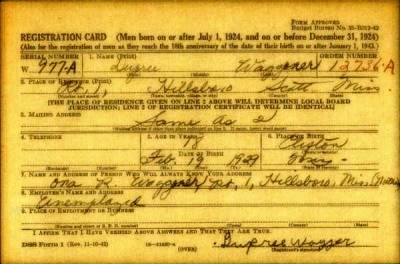 FORM APPROVED
Budget Bureau No. 33-R012-42
REGISTRATION CARD (Men born on or after July 1, 1924, and on or before December 31, 1924)
(Also for the registration of men as they reach the 18th anniversary of the date of their birth on or after January 1, 1943.)
SERIAL NUMBER 1. NAME (Print) ORDER NUMBER
W 977-A Dupree Waggoner 12736-A
2. PLACE OF RESIDENCE (Print)
Rt. 1, Hillsboro Scott Miss.
[THE PLACE OF RESIDENCE GIVEN ON LINE 2 ABOVE WILL DETERMINE LOCAL BOARD
JURISDICTION; LINE 2 OF REGISTRATION CERTIFICATE WILL BE IDENTICAL]
3. MAILING ADDRESS
Same as 2
4. TELEPHONE 5. AGE IN YEARS 6. PLACE OF BIRTH
18
DATE OF BIRTH
Feb. 19 Miss.
7. NAME AND ADDRESS OF PERSON WHO WILL ALWAYS KNOW YOUR ADDRESS
Waggoner, Rt. 1, Hillsboro, Miss
8. EMPLOYER'S NAME AND ADDRESS
Unemployed
9. PLACE OF EMPLOYMENT OR BUSINESS
I AFFIRM THAT I HAVE VERIFIED ABOVE ANSWERS AND THAT THEY ARE TRUE.
DSS Form 1 (Rev. 11-10-42) (OVER) Dupree Wagger